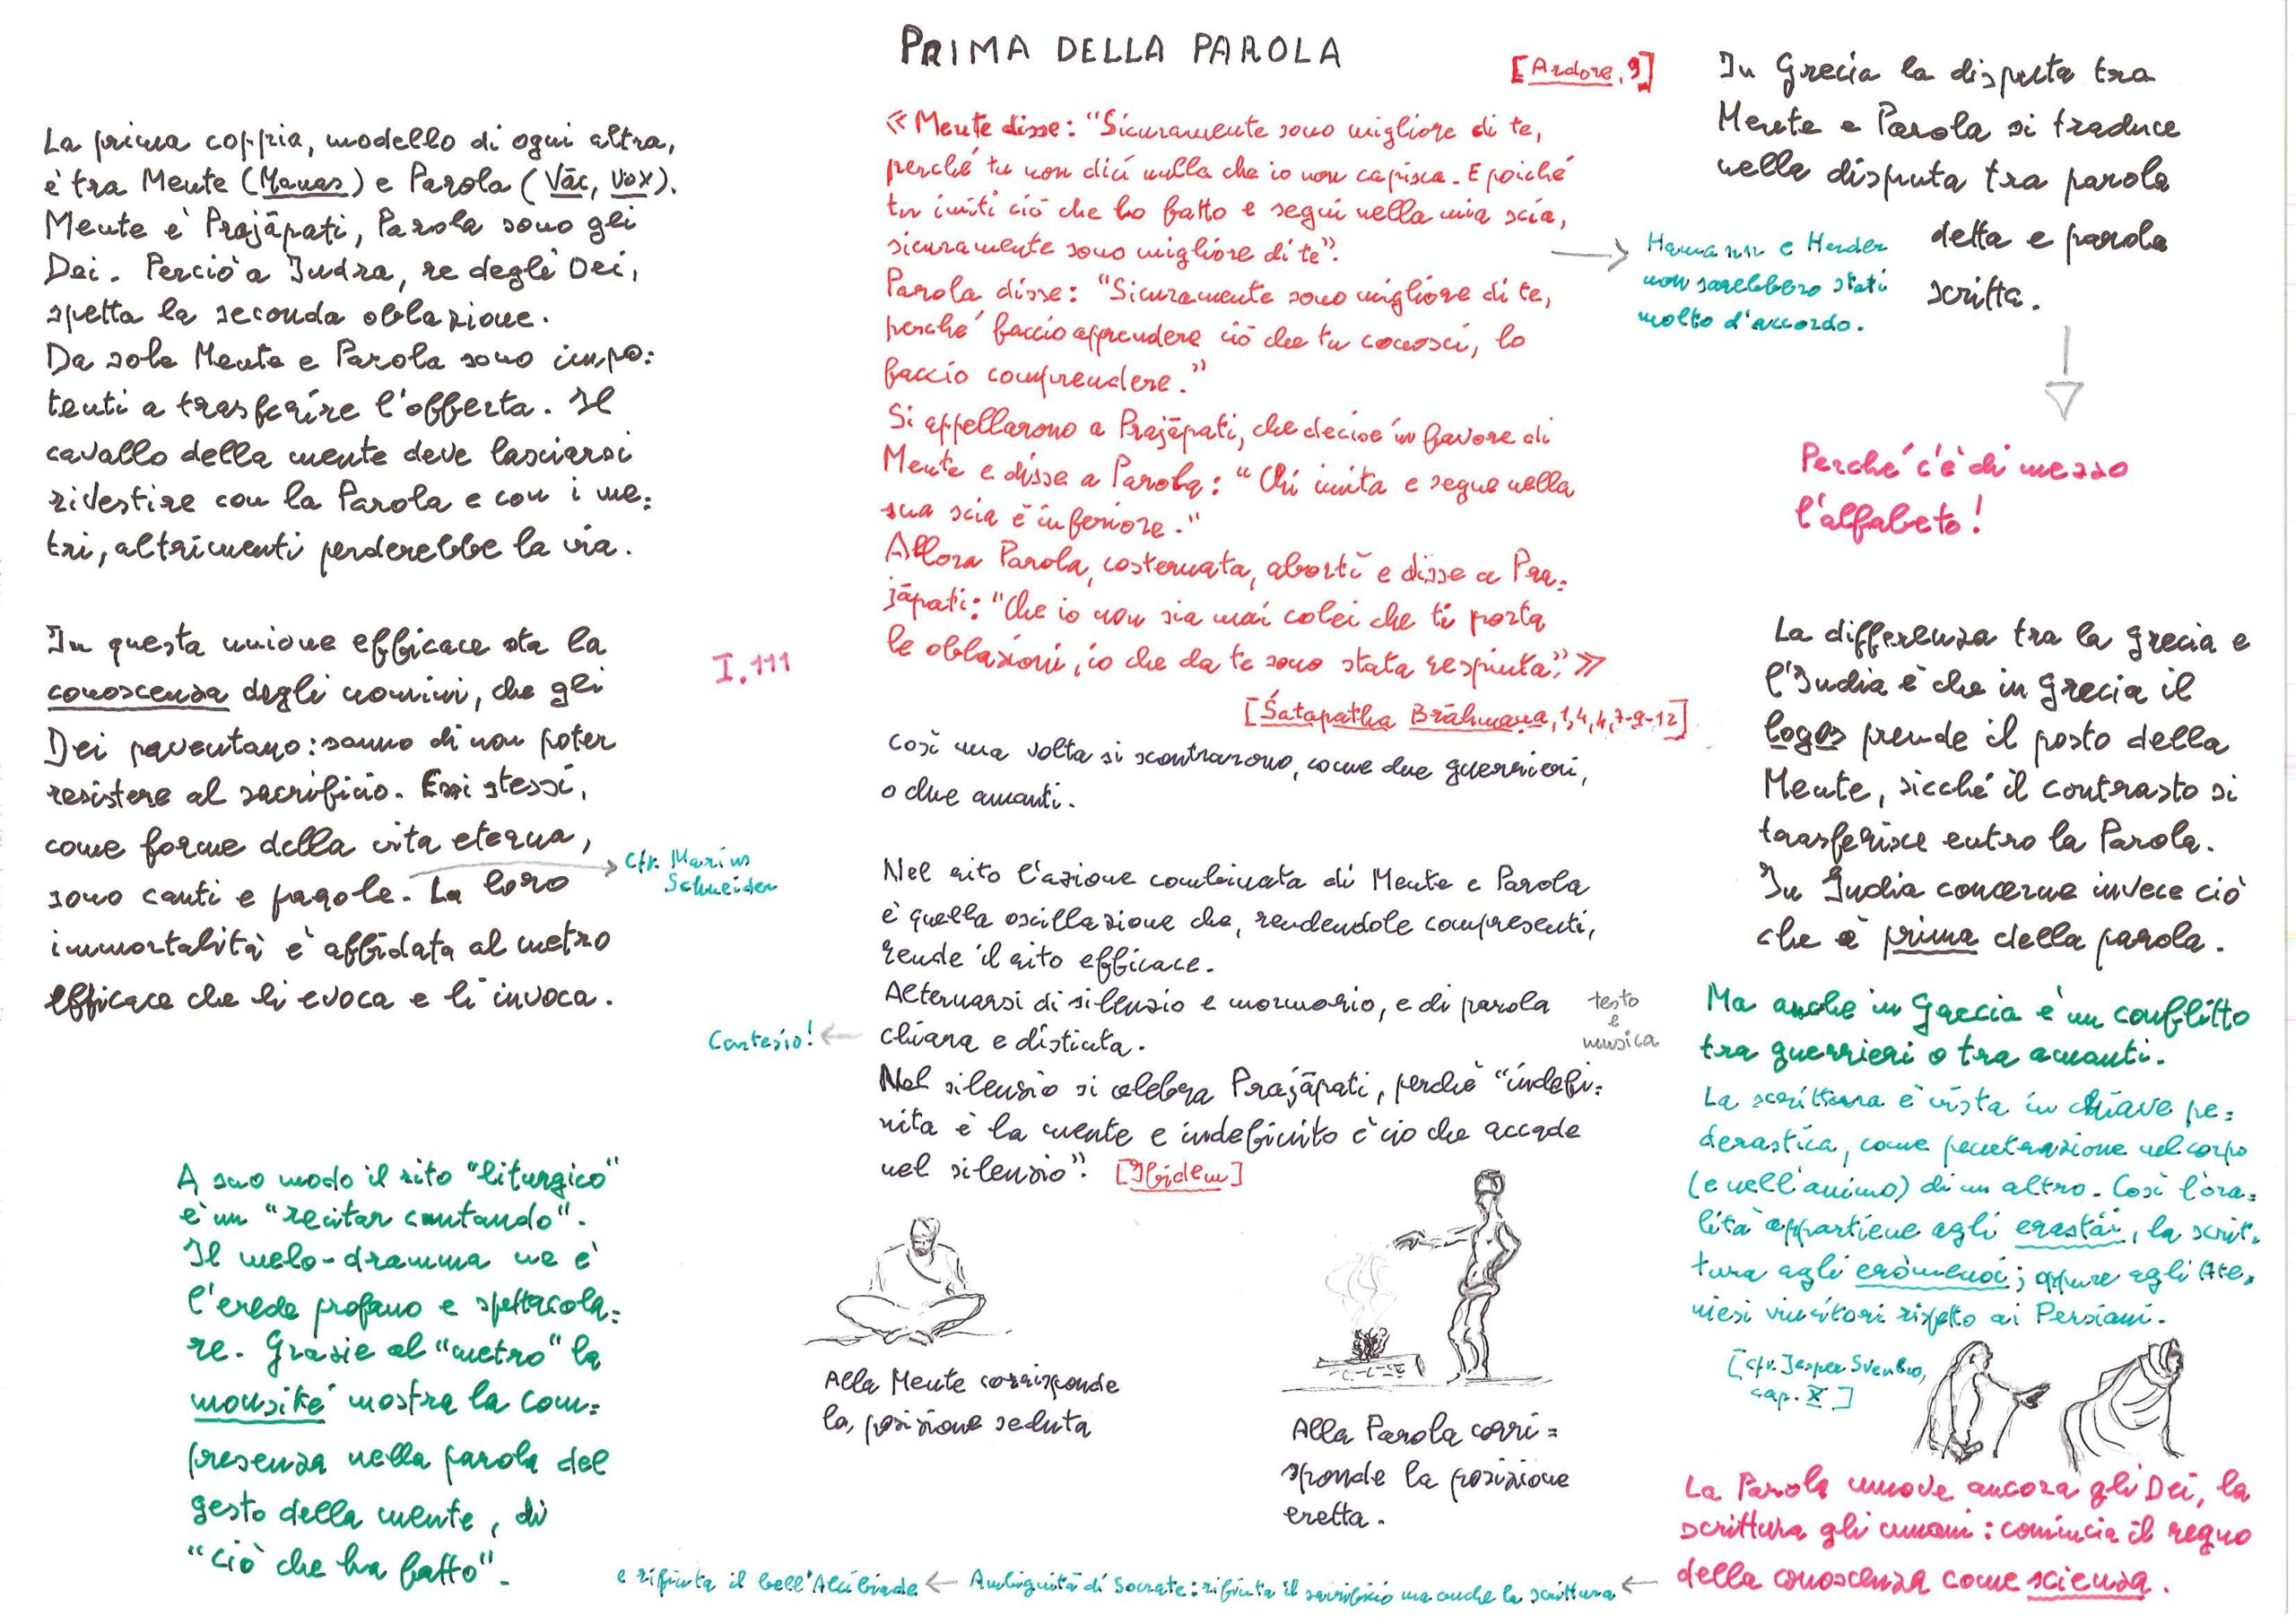 PRIMA DELLA PAROLA
La prima coppia, modello di ogni altra,
è tra Mente (Manas) e Parola (Vāc, Vox).
Mente è Prajāpati, Parola sono gli
Dei. Perciò a Indra, re degli Dei,
spetta la seconda oblazione.
Da sole Mente e Parola sono impo=
tenti a trasferire l'offerta. Il
cavallo della mente deve lasciarsi
rivestire con la Parola e con i me=
tri, altrimenti perderebbe la via.
In questa unione efficace sta la
conoscenza degli uomini, che gli
Dei paventano: sanno di non poter
resistere al sacrificio. Essi stessi,
come forme della vita eterna,
sono canti e parole. La loro
immortalità è affidata al metro
efficace che li evoca e li invoca.
I.111
Cfr. Marius
Schneider
A suo modo il rito "liturgico"
è un "recitar cantando".
Il melo-dramma ne è
l'erede profano e spettacola=
re. Grazie al "metro" la
mousiké mostra la com=
presenza nella parola del
gesto della mente, di
"ciò che ha fatto".
[Ardore, 9]
«Mente disse: "Sicuramente sono migliore di te,
perché tu non dici nulla che io non capisca. E poiché
tu imiti ciò che ho fatto e segui nella mia scia,
sicuramente sono migliore di te".
Parola disse: "Sicuramente sono migliore di te,
perché faccio apprendere ciò che tu conosci, lo
faccio comprendere."
Si appellarono a Prajāpati, che decise in favore di
Mente e disse a Parola: "Chi imita e segue nella
sua scia è inferiore."
Allora Parola, costernata, abortì e disse a Pra=
jāpati: "Che io non sia mai colei che ti porta
le oblazioni, io che da te sono stata respinta."»
[Śatapatha Brāhmana, 1,4,4,7-9-12]
Così una volta si scontrarono, come due guerrieri,
o due amanti.
Nel rito l'azione combinata di Mente e Parola
è quella oscillazione che, rendendole compresenti,
rende il rito efficace.
Alternarsi di silenzio e mormorio, e di parola
chiara e distinta.
testo
e
musica
Cartesio!
Nel silenzio si celebra Prajāpati, perché "indefi=
nita è la mente e indefinito è ciò che accade
nel silenzio". [Ibidem]
Alla Mente corrisponde
la posizione seduta
Alla Parola corri=
sponde la posizione
eretta.
Hamann e Herder
non sarebbero stati
molto d'accordo.
In Grecia la disputa tra
Mente e Parola si traduce
nella disputa tra parola
detta e parola
scritta.
Perché c'è di mezzo
l'alfabeto!
La differenza tra la Grecia e
l'India è che in Grecia il
logos prende il posto della
Mente, sicché il contrasto si
trasferisce entro la Parola.
In India concerne invece ciò
che è prima della parola.
Ma anche in Grecia è un conflitto
tra guerrieri o tra amanti.
La scrittura è vista in chiave pe=
derastica, come penetrazione nel corpo
(e nell'animo) di un altro. Così l'ora=
lità appartiene agli erastái, la scrit=
tura agli erōmenoi; oppure agli Ate=
niesi vincitori rispetto ai Persiani.
[cfr. Jesper Svenbro,
cap. X]
La Parola muove ancora gli Dei, la
scrittura gli umani: comincia il regno
della conoscenza come scienza.
Ambiguità di Socrate: rifiuta il sacrificio ma anche la scrittura
e rifiuta il bell'Alcibiade